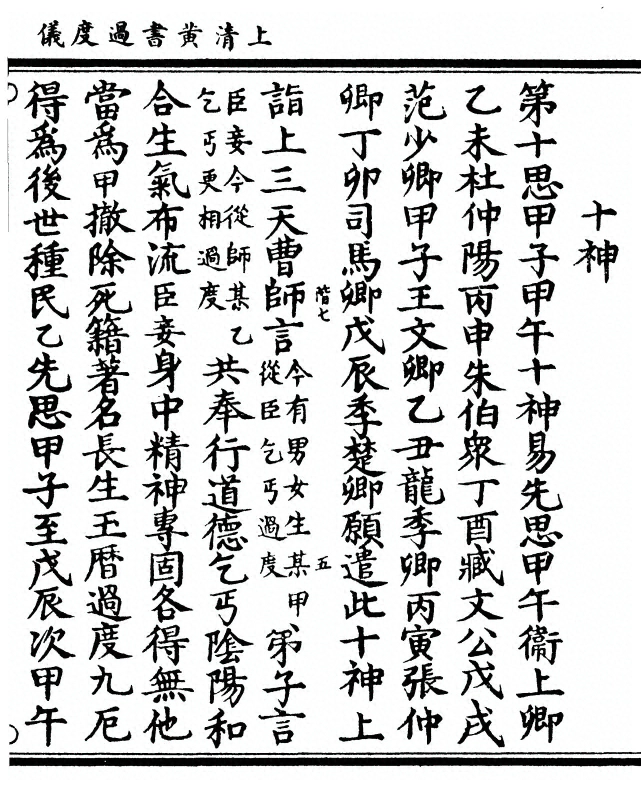 上清黃書過度儀
十神
第十思甲子甲午十神易先思甲午衞上卿
乙未杜仲陽丙申朱伯衆丁酉臧文公戊戌
范少卿甲子王文卿乙丑龍季卿丙寅張仲
卿丁卯司馬卿戊辰季楚卿願遣此十神上
詣上三天曹師言今有男女生某甲從臣乞丐過度弟子言
階七
五
臣妾今從師某乙乞丐更相過度共奉行道德乞丐陰陽和
合生氣布流臣妾身中精神專固各得無他
當爲甲撤除死籍著名長生玉曆過度九厄
得爲後世種民乙先思甲子至戊辰次甲午